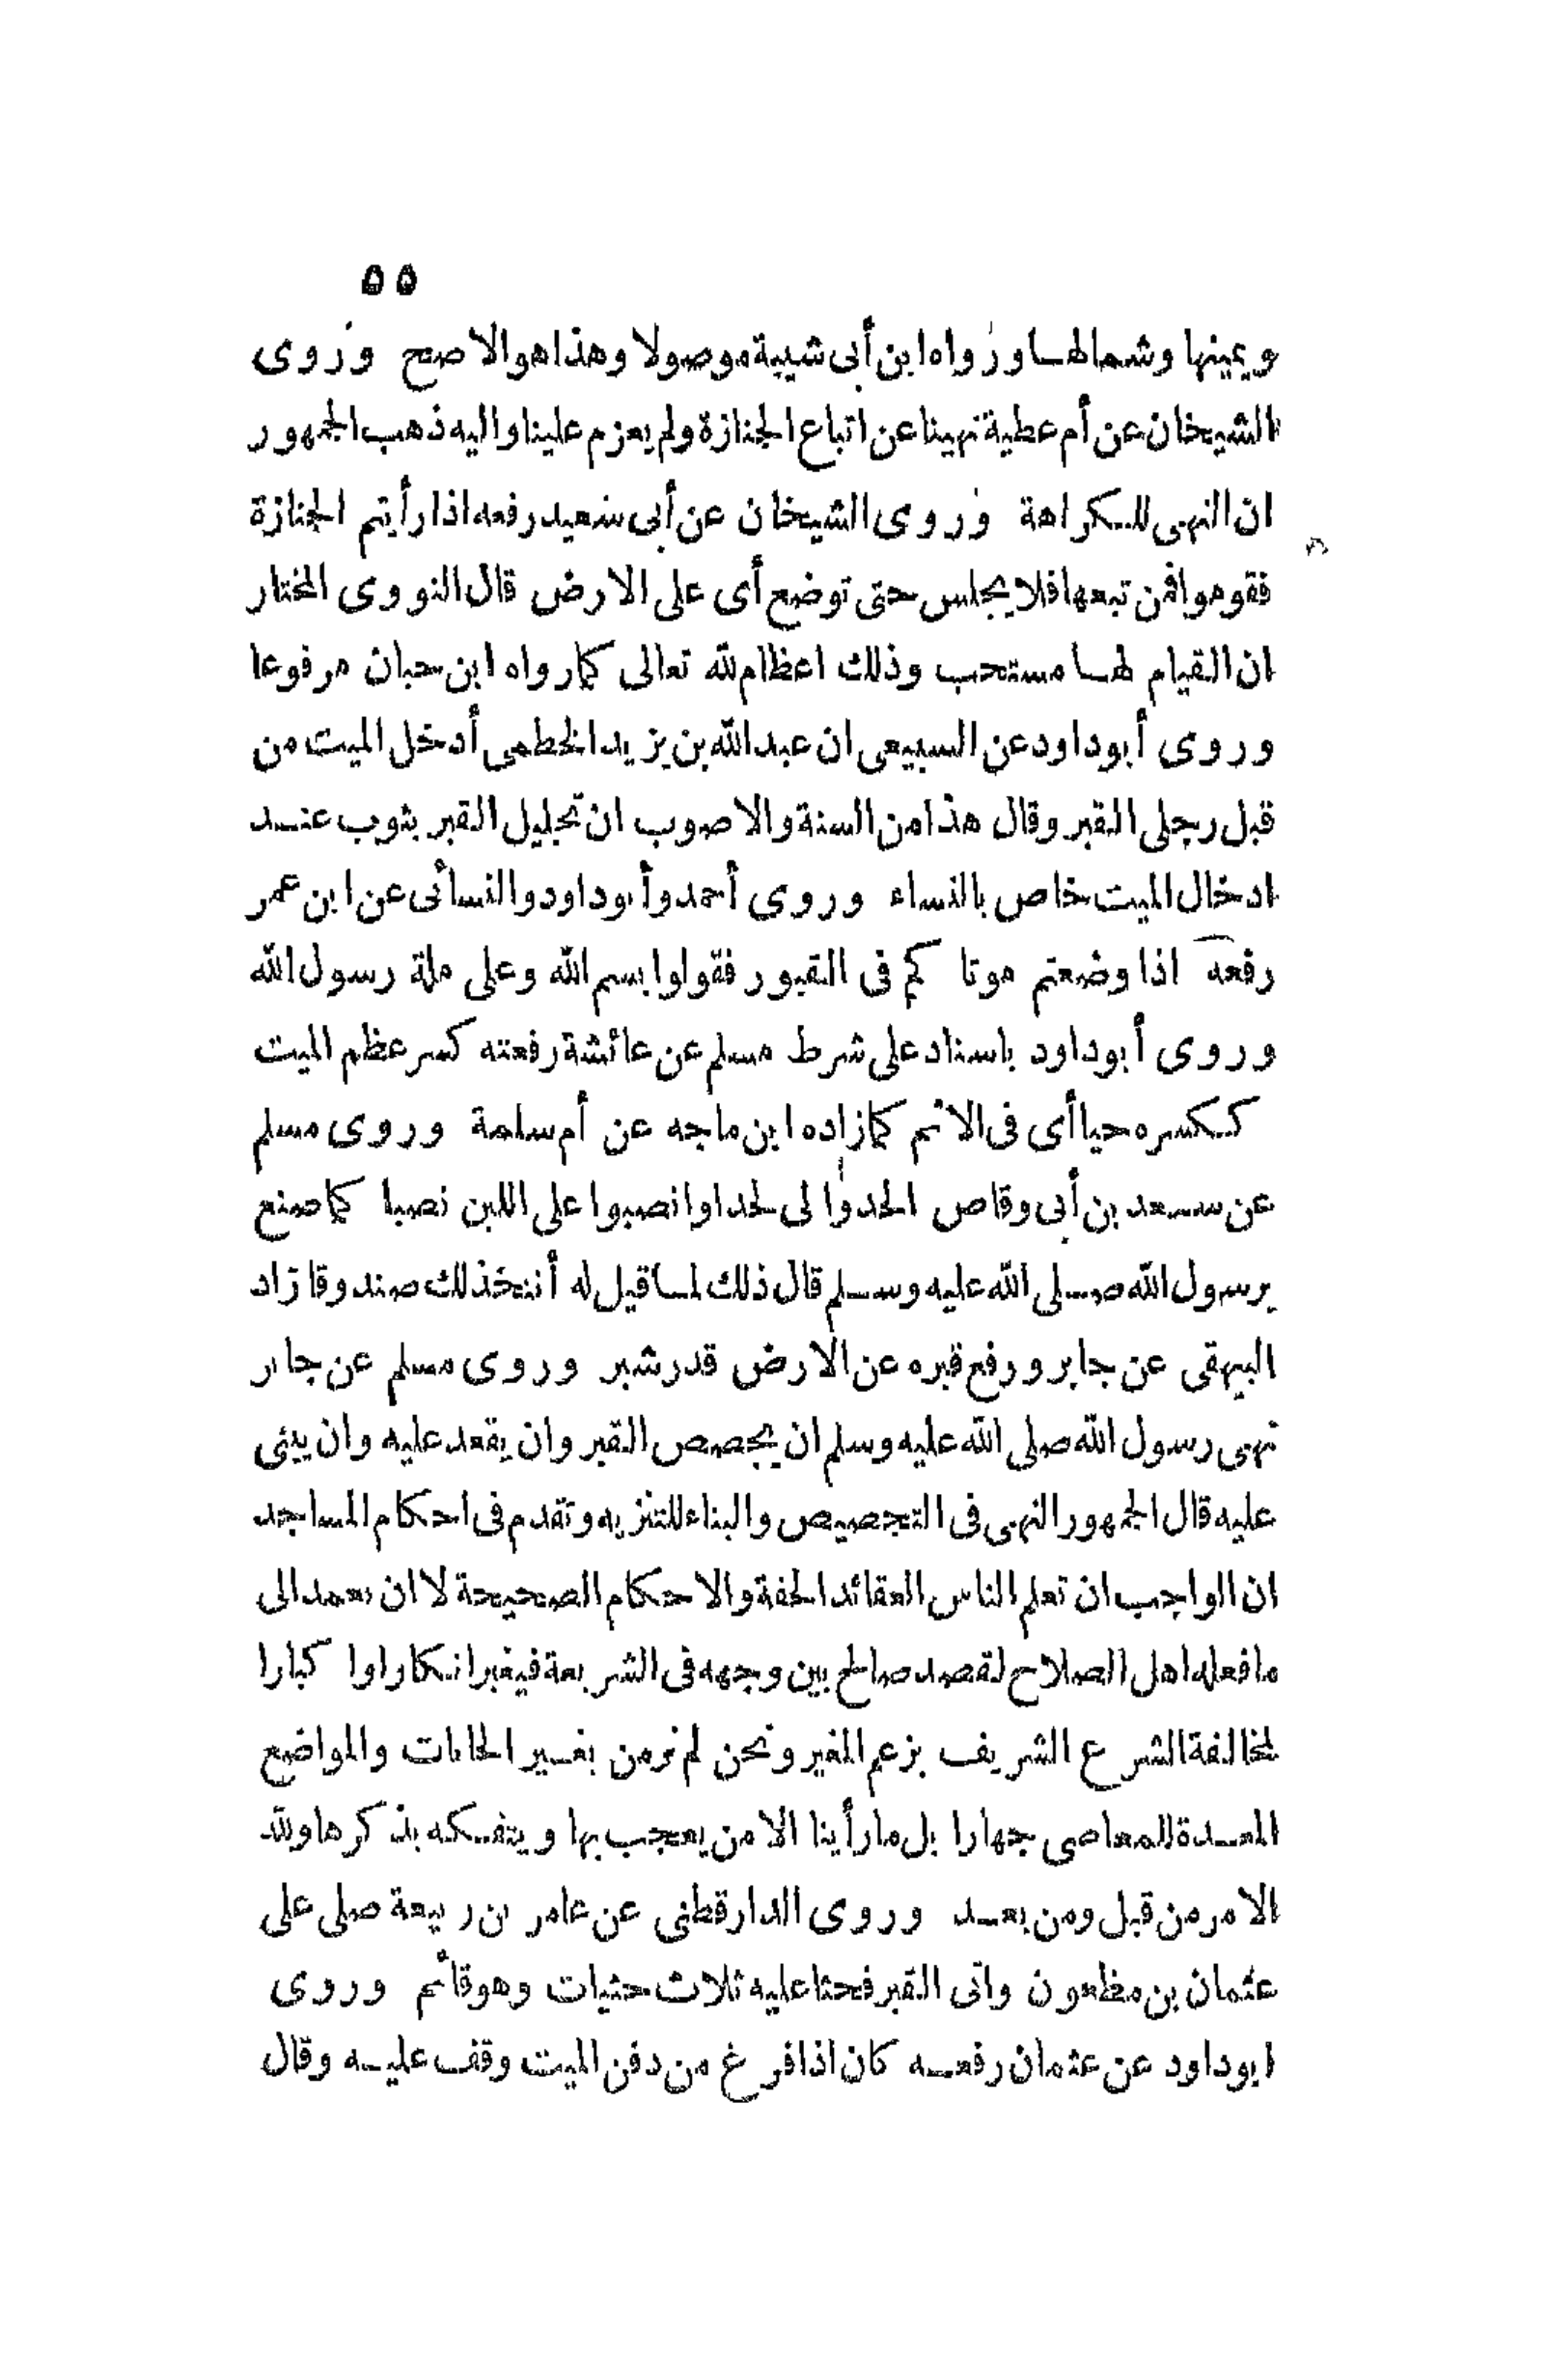 ٥٥
ويمينها وشمالها ورواه ابن أبى شيبة موصولا وهذا هو الاصح وروى
الشيخان عن أم عطية نهينا عن اتباع الجنازة ولم يعزم علينا واليه ذهب الجمهور
ان النهى للكراهة وروى الشيخان عن أبى سعيد رفعه اذا رأيتم الجنازة
فقوموا فمن تبعها فلا يجلس حتى توضع أى على الارض قال النووى المختار
ان القيام لها مستحب وذلك اعظام لله تعالى كما رواه ابن حبان مرفوعا
وروى أبو داود عن السبيعى ان عبد الله بن يزيد الخطمى أدخل الميت من
قبل رجلى القبر وقال هذا من السنة والاصوب ان تجليل القبر بثوب عند
ادخال الميت خاص بالنساء وروى أحمد وأبو داود والنسائى عن ابن عمر
رفعه اذا وضعتم موتا كم فى القبور فقولوا بسم الله وعلى ملة رسول الله
وروى أبو داود باسناد على شرط مسلم عن عائشة رفعته كسر عظم الميت
ككسره حيا أى فى الاثم كما زاده ابن ماجه عن أم سلمة وروى مسلم
عن سعد بن أبى وقاص الحدوا لى لحدا وانصبوا على اللبن نصبا كما صنع
برسول الله صلى الله عليه وسلم قال ذلك لما قيل له أنتخذ لك صندوقا زاد
البيهقى عن جابر ورفع قبره عن الارض قدر شبر وروى مسلم عن جابر
نهى رسول الله صلى الله عليه وسلم ان يجصص القبر وان يقعد عليه وان يبنى
عليه قال الجمهور النهى فى التجصيص والبناء للتنزيه وتقدم فى احكام المساجد
ان الواجب ان تعلم الناس العقائد الحقة والاحكام الصحيحة لا ان يعمد الى
ما فعله اهل الصلاح لقصد صالح بين وجهه فى الشريعة فيغير انكارا وا كبارا
لمخالفة الشرع الشريف بزعم المغير ونحن لم نر من يغير الحانات والمواضع
المعدة للمعاصى جهارا بل ما رأينا الا من يعجب بها ويتفكه بذكرها ولله
الامر من قبل ومن بعد وروى الدارقطنى عن عامر بن ربيعة صلى على
عثمان بن مظعون واتى القبر فحثا عليه ثلاث حثيات وهو قائم وروى
ابو داود عن عثمان رفعه كان اذا فرغ من دفن الميت وقف عليه وقال